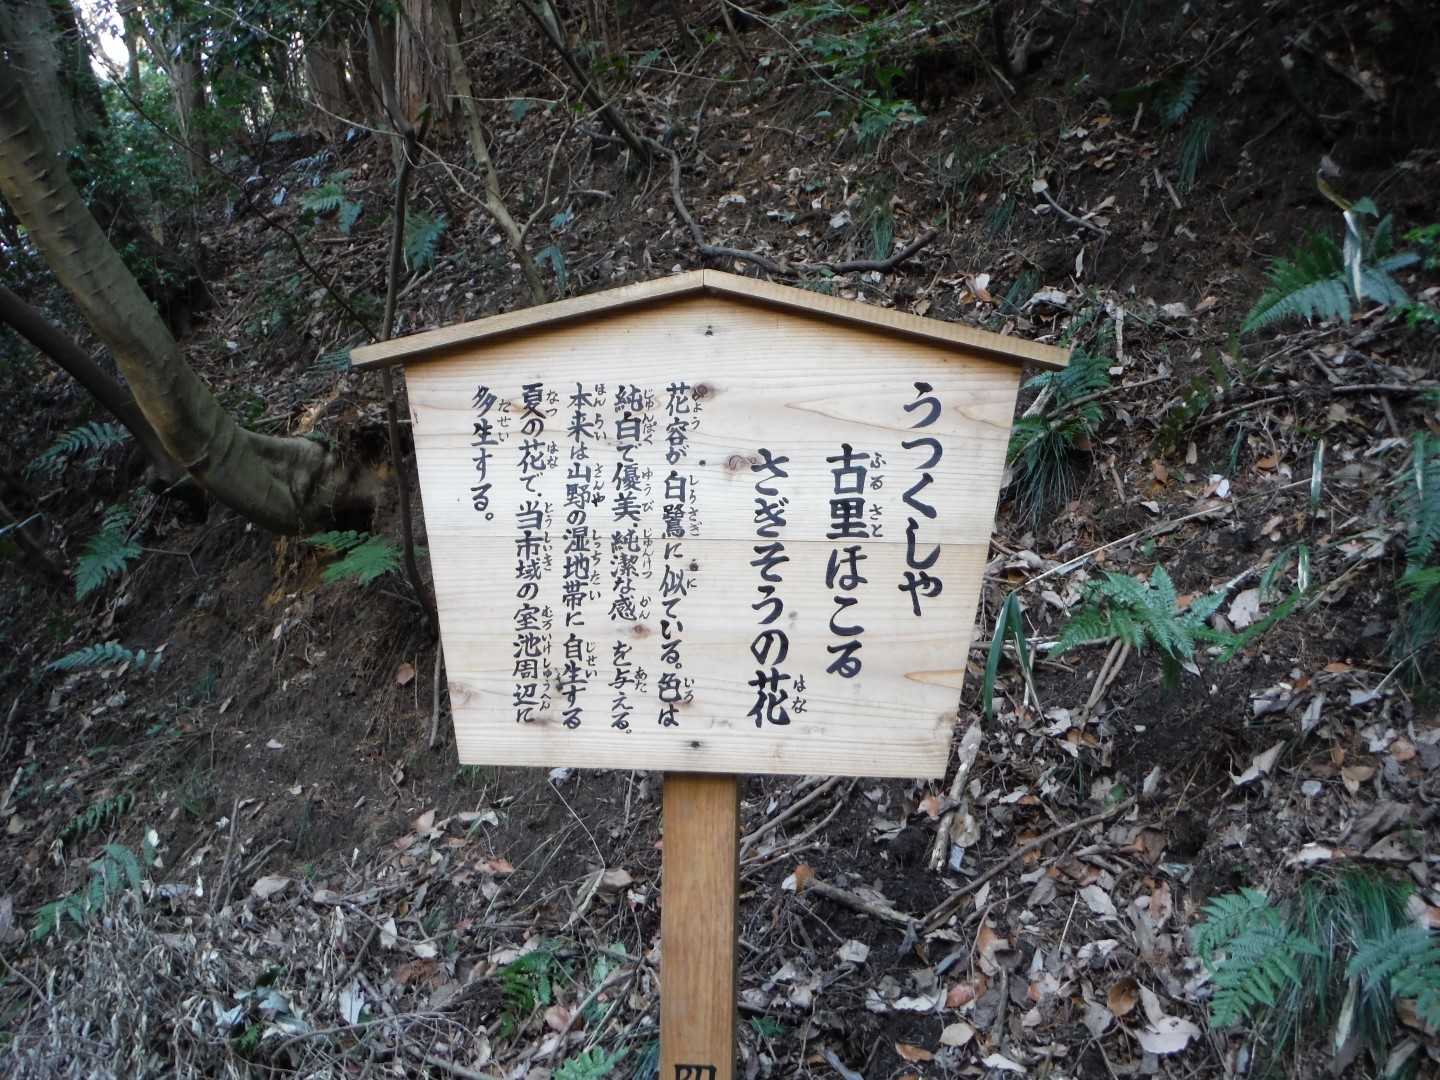 うつくしや
古里ほこる
さぎそうの花
花容が白鷺に似ている。色は
純白で優美、純潔な感を与える。
本来は山野の湿地帯に自生する
夏の花で、当市域の室池周辺に
多生する。